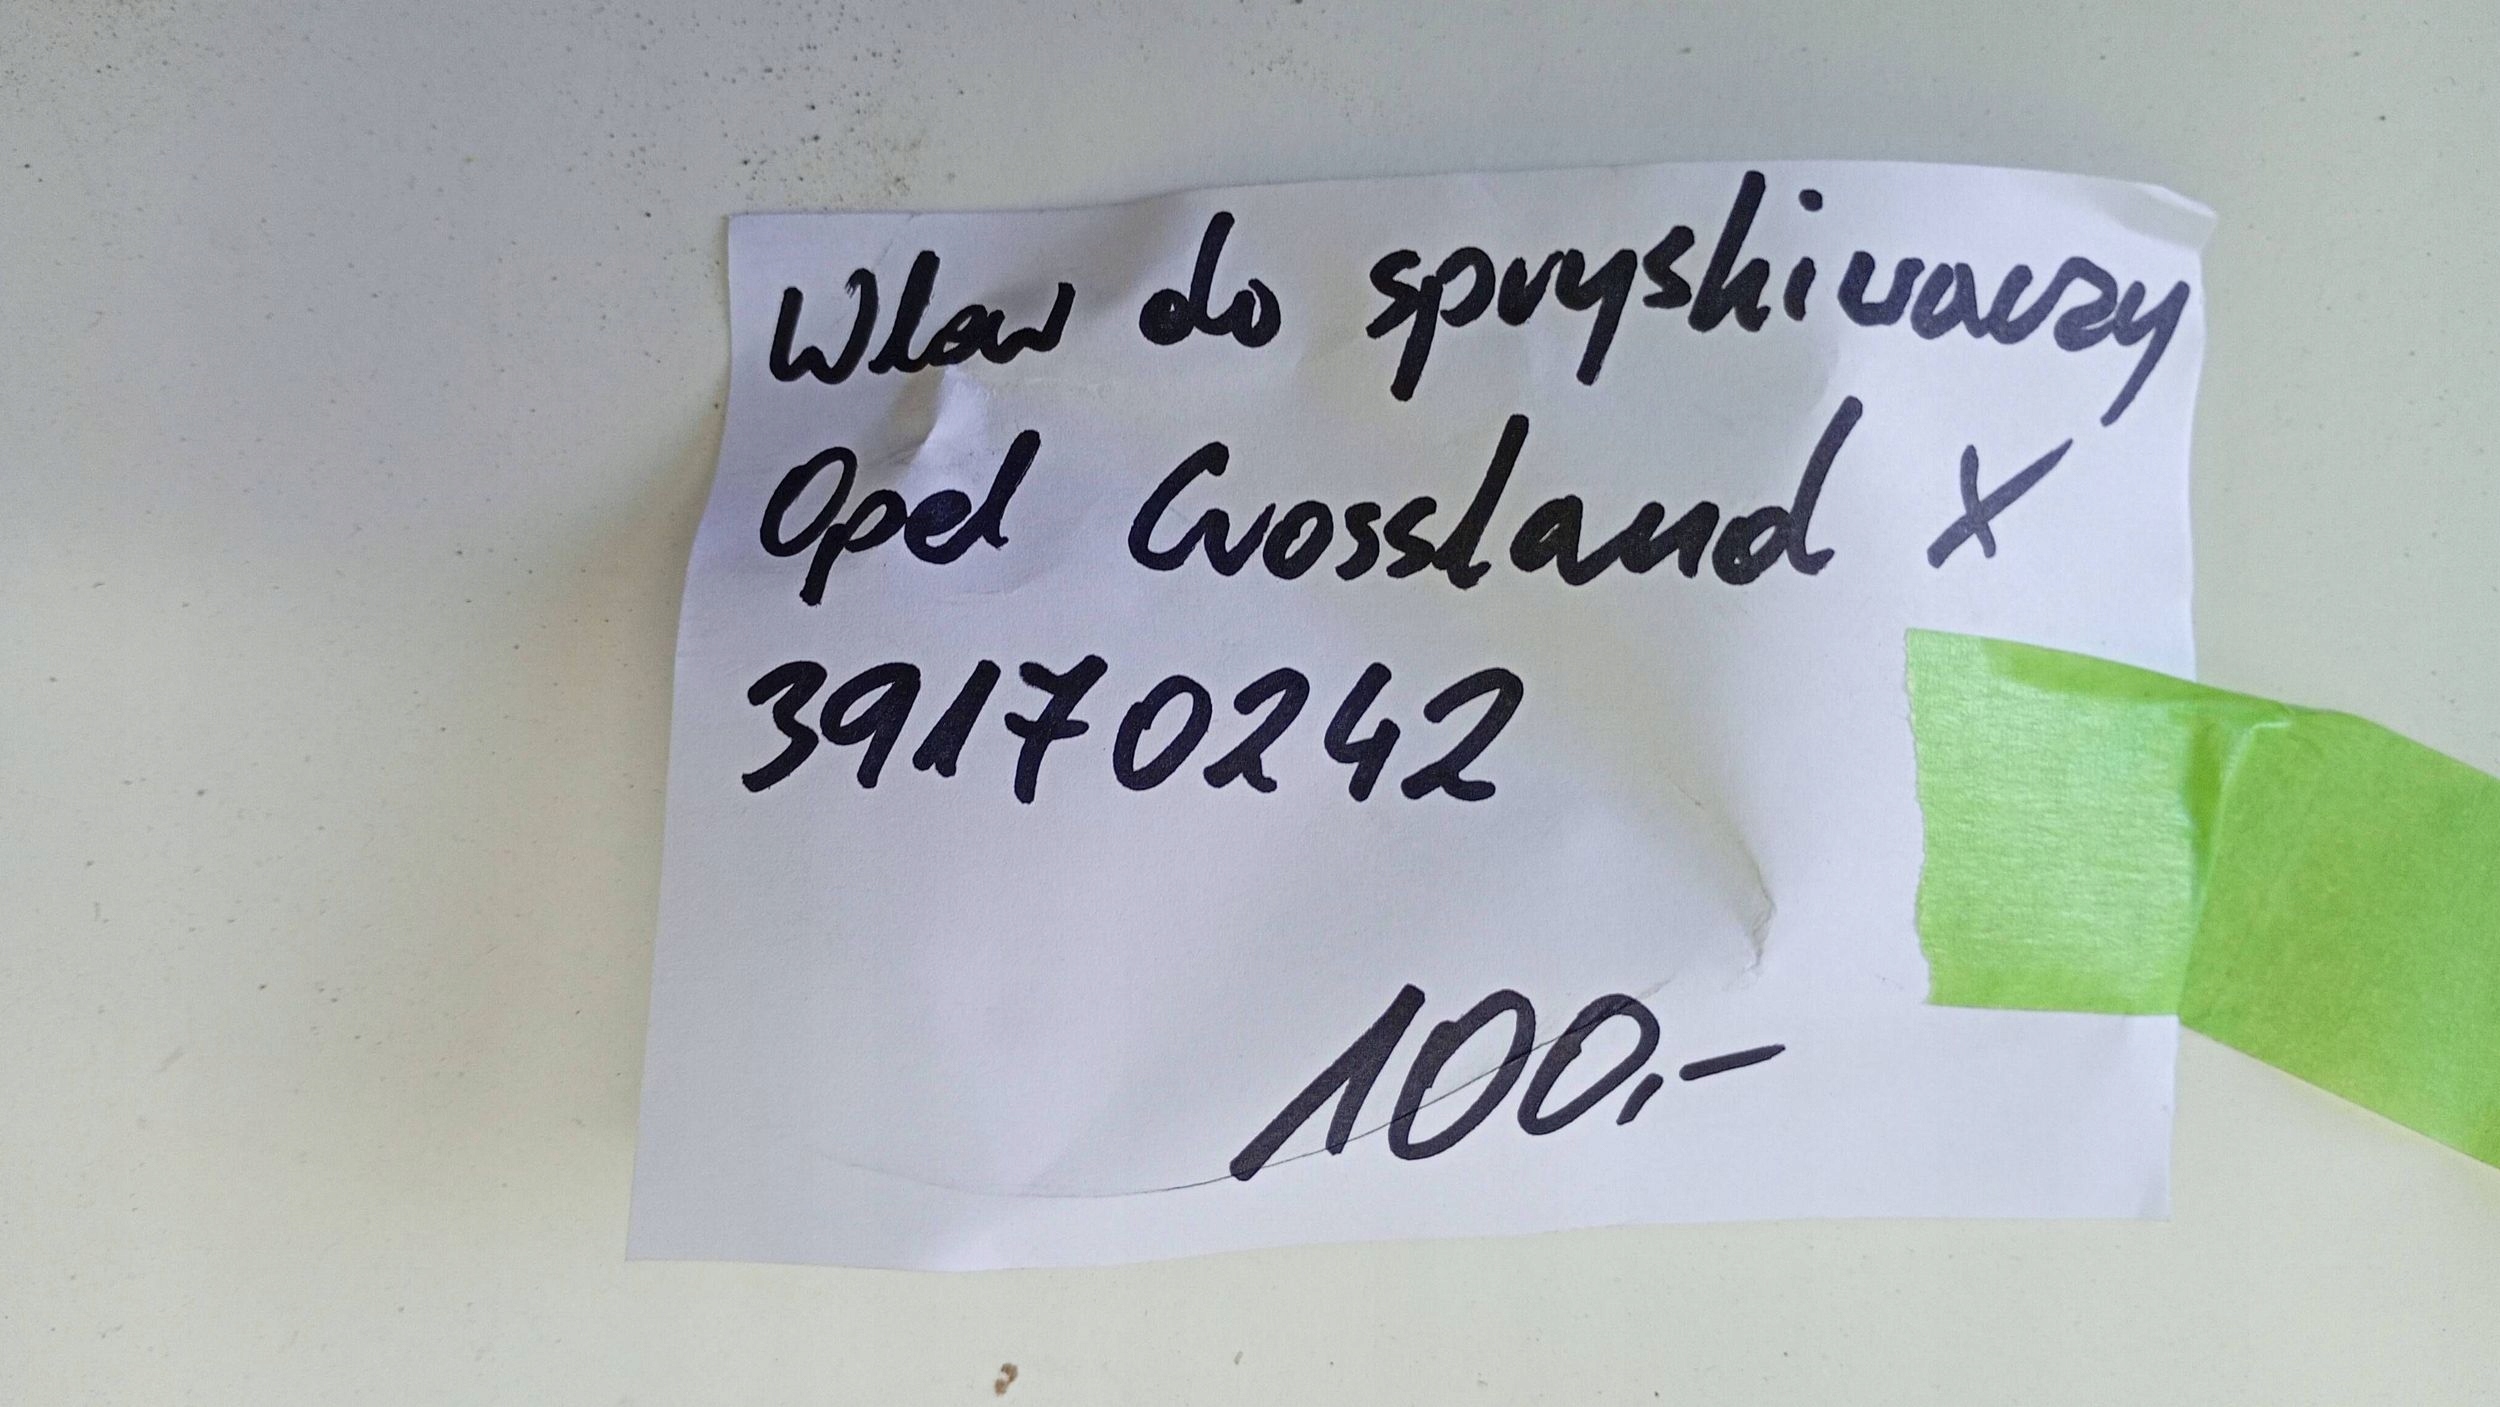 Wlew do spryskiwaczy
Opel Crossland X
39170242
100,-